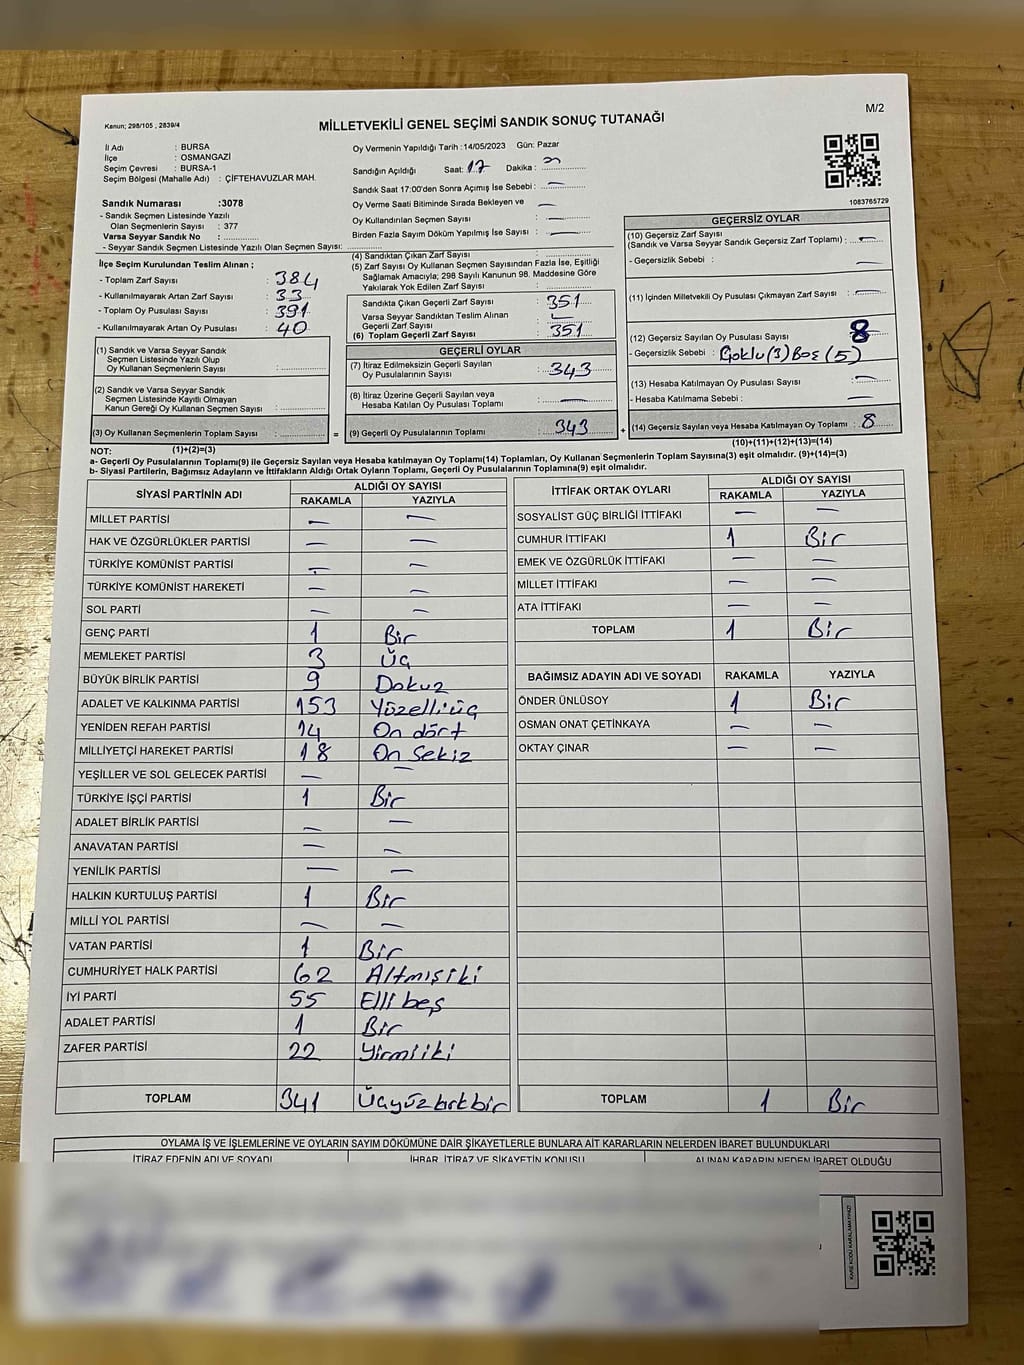 Kanun; 298/105 , 2839/4
M/2
MİLLETVEKİLİ GENEL SEÇİMİ SANDIK SONUÇ TUTANAĞI
İl Adı : BURSA
İlçe : OSMANGAZİ
Seçim Çevresi : BURSA-1
Seçim Bölgesi (Mahalle Adı) : ÇİFTEHAVUZLAR MAH.
Sandık Numarası :3078
- Sandık Seçmen Listesinde Yazılı
Olan Seçmenlerin Sayısı : 377
Varsa Seyyar Sandık No :
- Seyyar Sandık Seçmen Listesinde Yazılı Olan Seçmen Sayısı:
Oy Vermenin Yapıldığı Tarih :14/05/2023 Gün: Pazar
Sandığın Açıldığı Saat: 17 Dakika :
Sandık Saat 17:00'den Sonra Açımış İse Sebebi : —
Oy Verme Saati Bitiminde Sırada Bekleyen ve —
Oy Kullandırılan Seçmen Sayısı : —
Birden Fazla Sayım Döküm Yapılmış İse Sayısı : —
1083765729
İlçe Seçim Kurulundan Teslim Alınan ;
- Toplam Zarf Sayısı : 384
- Kullanılmayarak Artan Zarf Sayısı : 33
- Toplam Oy Pusulası Sayısı : 391
- Kullanılmayarak Artan Oy Pusulası : 40
(1) Sandık ve Varsa Seyyar Sandık
Seçmen Listesinde Yazılı Olup
Oy Kullanan Seçmenlerin Sayısı :
(2) Sandık ve Varsa Seyyar Sandık
Seçmen Listesinde Kayıtlı Olmayan
Kanun Gereği Oy Kullanan Seçmen Sayısı :
(3) Oy Kullanan Seçmenlerin Toplam Sayısı : =
(4) Sandıktan Çıkan Zarf Sayısı :
(5) Zarf Sayısı Oy Kullanan Seçmen Sayısından Fazla İse, Eşitliği
Sağlamak Amacıyla; 298 Sayılı Kanunun 98. Maddesine Göre
Yakılarak Yok Edilen Zarf Sayısı :
Sandıkta Çıkan Geçerli Zarf Sayısı : 351
Varsa Seyyar Sandıktan Teslim Alınan
Geçerli Zarf Sayısı : —
(6) Toplam Geçerli Zarf Sayısı : 351
GEÇERLİ OYLAR
(7) İtiraz Edilmeksizin Geçerli Sayılan
Oy Pusulalarının Sayısı : 343
(8) İtiraz Üzerine Geçerli Sayılan veya
Hesaba Katılan Oy Pusulası Toplamı : —
(9) Geçerli Oy Pusulalarının Toplamı : 343 +
GEÇERSİZ OYLAR
(10) Geçersiz Zarf Sayısı
(Sandık ve Varsa Seyyar Sandık Geçersiz Zarf Toplamı) : —
- Geçersizlik Sebebi : —
(11) İçinden Milletvekili Oy Pusulası Çıkmayan Zarf Sayısı : —
(12) Geçersiz Sayılan Oy Pusulası Sayısı : 8
- Geçersizlik Sebebi : Çoklu(3) Boş (5)
(13) Hesaba Katılmayan Oy Pusulası Sayısı : —
- Hesaba Katılmama Sebebi : —
(14) Geçersiz Sayılan veya Hesaba Katılmayan Oy Toplamı : 8
NOT: (1)+(2)=(3) (10)+(11)+(12)+(13)=(14)
a- Geçerli Oy Pusulalarının Toplamı(9) ile Geçersiz Sayılan veya Hesaba Katılmayan Oy Toplamı(14) Toplamları, Oy Kullanan Seçmenlerin Toplam Sayısına(3) eşit olmalıdır. (9)+(14)=(3)
b- Siyasi Partilerin, Bağımsız Adayların ve İttifakların Aldığı Ortak Oyların Toplamı, Geçerli Oy Pusulalarının Toplamına(9) eşit olmalıdır.
SİYASİ PARTİNİN ADI ALDIĞI OY SAYISI
RAKAMLA YAZIYLA
MİLLET PARTİSİ — —
HAK VE ÖZGÜRLÜKLER PARTİSİ — —
TÜRKİYE KOMÜNİST PARTİSİ — —
TÜRKİYE KOMÜNİST HAREKETİ — —
SOL PARTİ — —
GENÇ PARTİ 1 Bir
MEMLEKET PARTİSİ 3 Üç
BÜYÜK BİRLİK PARTİSİ 9 Dokuz
ADALET VE KALKINMA PARTİSİ 153 Yüzelliüç
YENİDEN REFAH PARTİSİ 14 On dört
MİLLİYETÇİ HAREKET PARTİSİ 18 On Sekiz
YEŞİLLER VE SOL GELECEK PARTİSİ — —
TÜRKİYE İŞÇİ PARTİSİ 1 Bir
ADALET BİRLİK PARTİSİ — —
ANAVATAN PARTİSİ — —
YENİLİK PARTİSİ — —
HALKIN KURTULUŞ PARTİSİ 1 Bir
MİLLİ YOL PARTİSİ — —
VATAN PARTİSİ 1 Bir
CUMHURİYET HALK PARTİSİ 62 Altmışiki
İYİ PARTİ 55 Elli beş
ADALET PARTİSİ 1 Bir
ZAFER PARTİSİ 22 Yirmiiki
TOPLAM 341 Üçyüzkırkbir
İTTİFAK ORTAK OYLARI ALDIĞI OY SAYISI
RAKAMLA YAZIYLA
SOSYALİST GÜÇ BİRLİĞİ İTTİFAKI — —
CUMHUR İTTİFAKI 1 Bir
EMEK VE ÖZGÜRLÜK İTTİFAKI — —
MİLLET İTTİFAKI — —
ATA İTTİFAKI — —
TOPLAM 1 Bir
BAĞIMSIZ ADAYIN ADI VE SOYADI RAKAMLA YAZIYLA
ÖNDER ÜNLÜSOY 1 Bir
OSMAN ONAT ÇETİNKAYA — —
OKTAY ÇINAR — —
TOPLAM 1 Bir
OYLAMA İŞ VE İŞLEMLERİNE VE OYLARIN SAYIM DÖKÜMÜNE DAİR ŞİKAYETLERLE BUNLARA AİT KARARLARIN NELERDEN İBARET BULUNDUKLARI
İTİRAZ EDENİN ADI VE SOYADI İHBAR, İTİRAZ VE ŞİKAYETİN KONUSU ALINAN KARARIN NEDEN İBARET OLDUĞU
KARE KODU KARALAMAYINIZ!